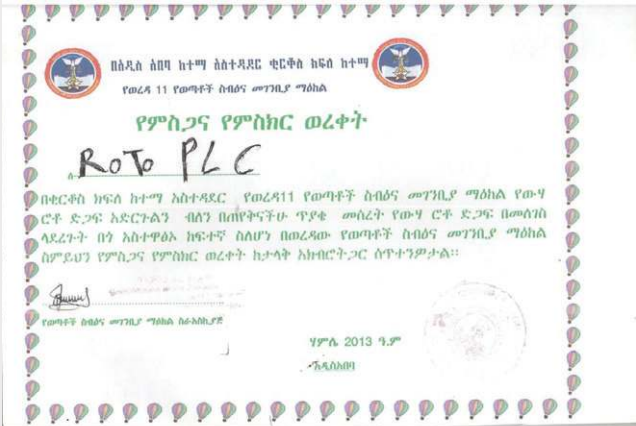 በአዲስ አበባ ከተማ አስተዳደር ቂርቆስ ክፍለ ከተማ
የወረዳ 11 የወጣቶች ስብዕና መገንቢያ ማዕከል
የምስጋና የምስክር ወረቀት
ለ ROTO PLC
በቂርቆስ ክፍለ ከተማ አስተዳደር የወረዳ11 የወጣቶች ስብዕና መገንቢያ ማዕከል የውሃ
ሮቶ ድጋፍ አድርጉልን ብለን በጠየቅናችሁ ጥያቄ መሰረት የውሃ ሮቶ ድጋፍ በመለገስ
ላደረጉት በጎ አስተዋፅኦ ከፍተኛ ስለሆነ በወረዳው የወጣቶች ስብዕና መገንቢያ ማዕከል
ስምይህን የምስጋና የምስክር ወረቀት ከታላቅ አክብሮትጋር ሰጥተንዎታል።
የወጣቶች ስብዕና መገንቢያ ማዕከል ስራአስኪያጅ
ሃምሌ 2013 ዓ.ም
አዲስአበባ